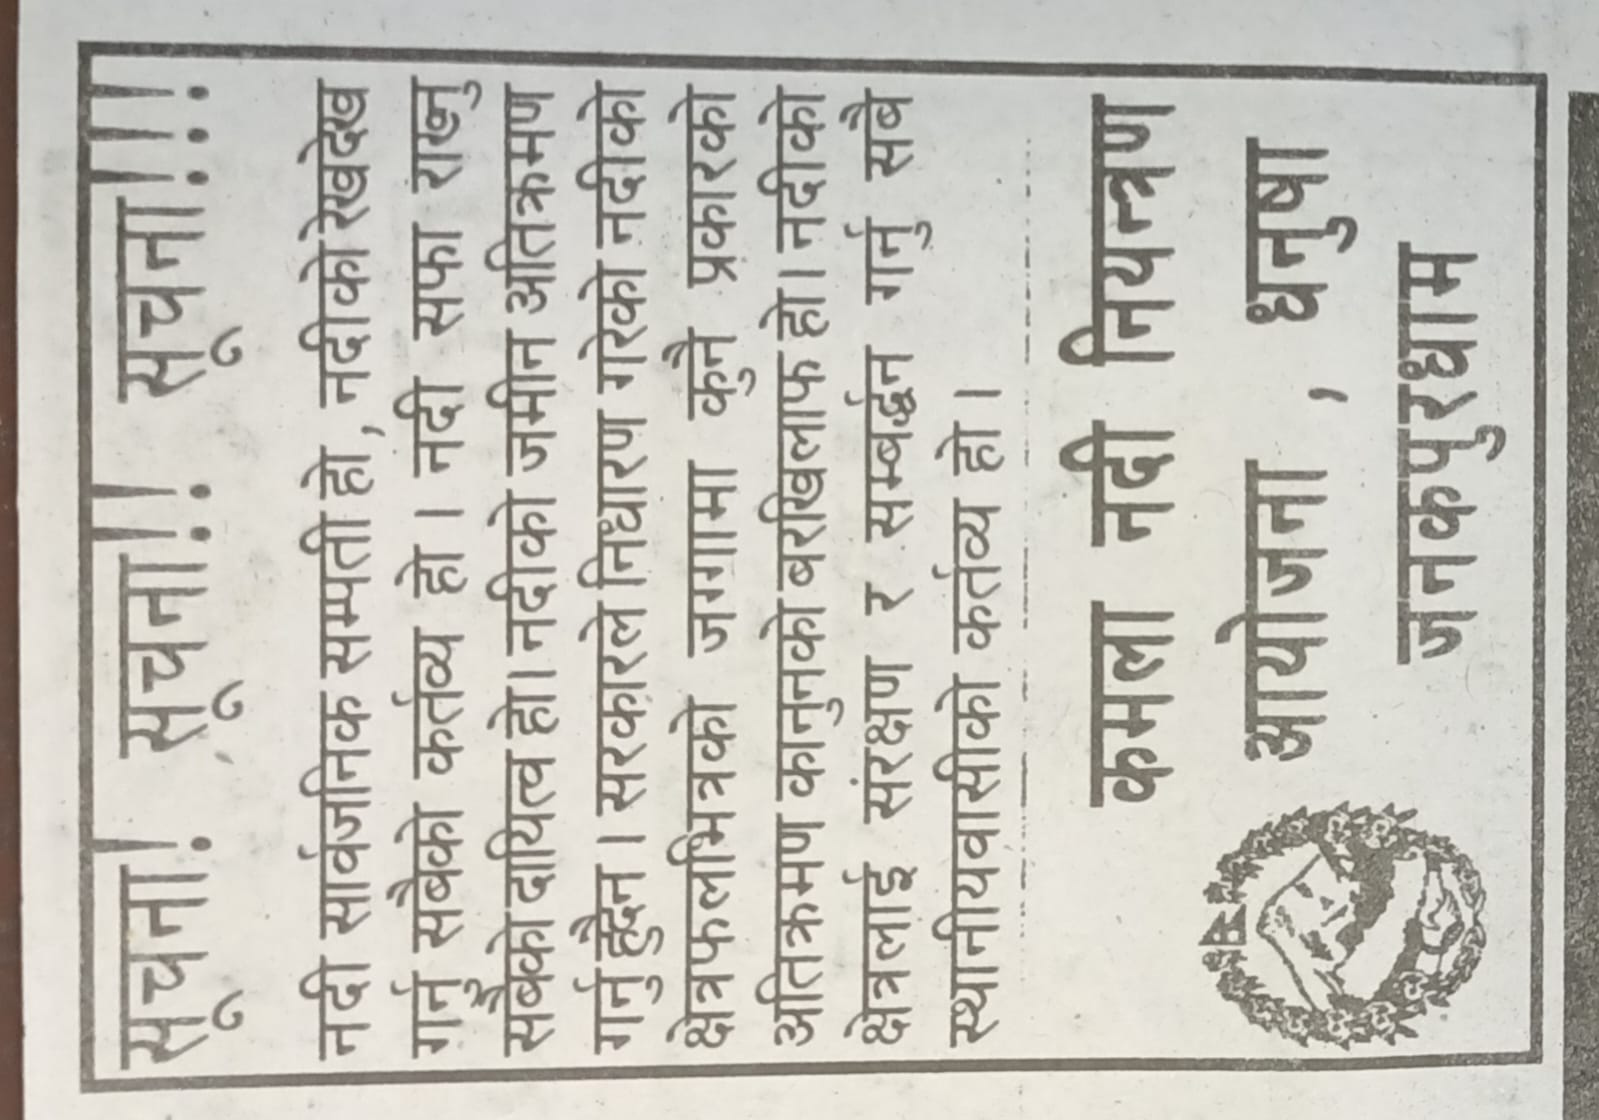 सूचना! सूचना!! सूचना!!!
नदी सार्वजनिक सम्पती हो, नदीको रेखदेख
गर्नु सबैको कर्तव्य हो । नदी सफा राख्नु
सबैको दायित्व हो। नदीको जमीन अतिक्रमण
गर्नु हुदैन । सरकारले निर्धारण गरेको नदीको
क्षेत्रफलभित्रको जग्गामा कुनै प्रकारको
अतिक्रमण कानुनको बरखिलाफ हो। नदीको
क्षेत्रलाई संरक्षण र सम्बर्द्धन गर्नु सबै
स्थानीयवासीको कर्तव्य हो ।
कमला नदी नियन्त्रण
आयोजना , धनुषा
जनकपुरधाम